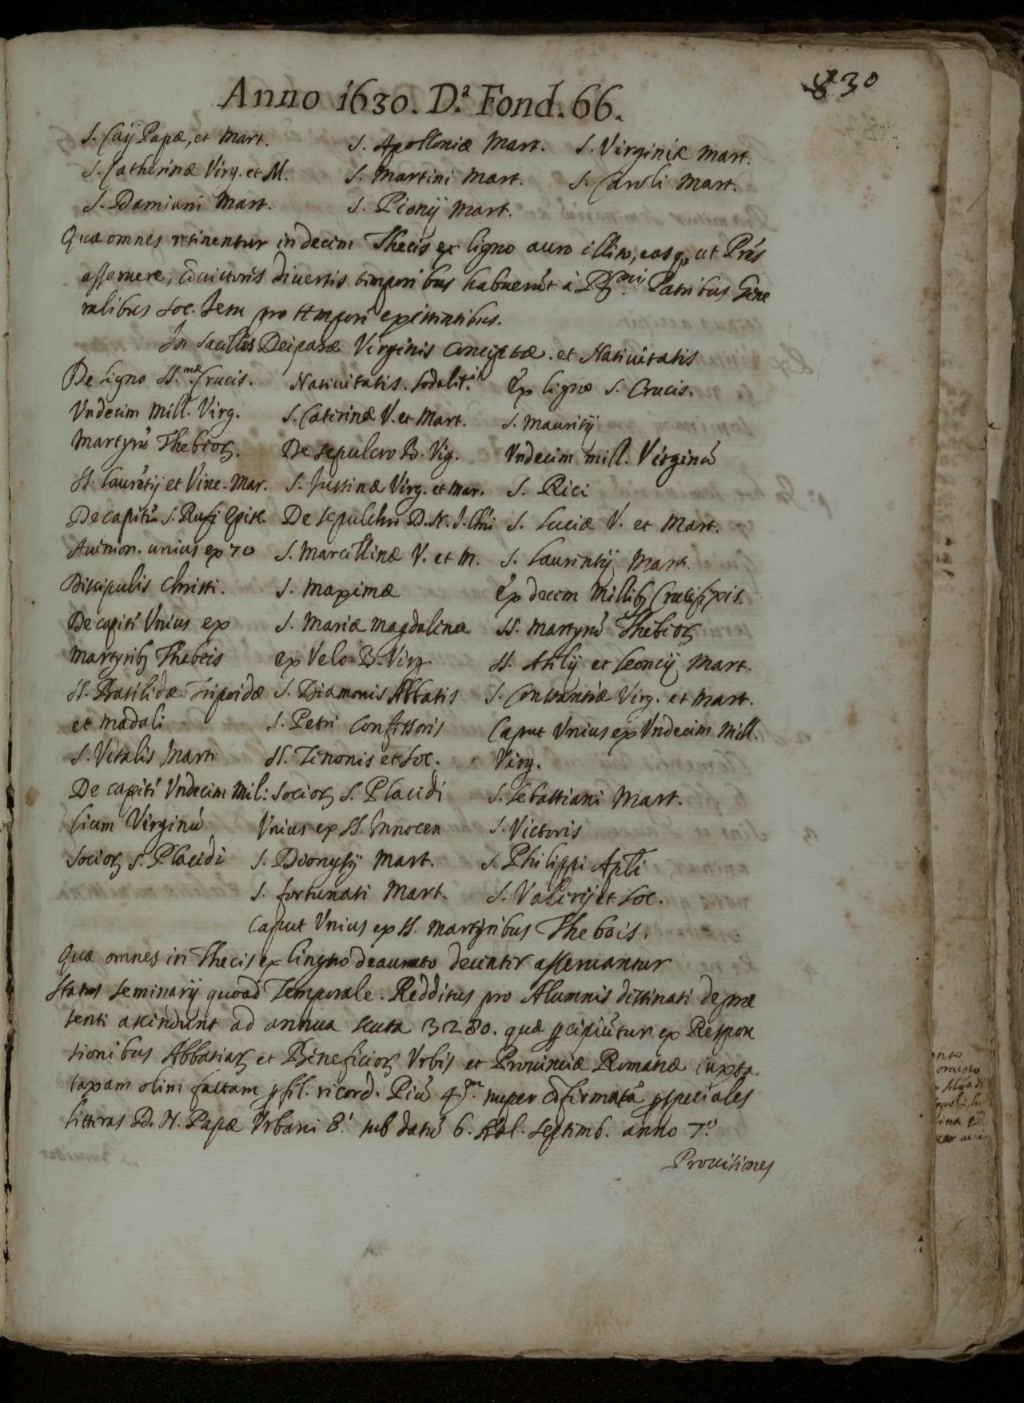 830
Anno 1630. D.ª Fond. 66.
S. Caÿ Papæ, et Mart. S. Apolloniæ Mart. S. Virginiæ Mart.
S. Catherinæ Virg. et M. S. Martini Mart. S. Caroli Mart.
S. Damiani Mart. S. Pionÿ Mart.
Quæ omnes retinentur in decem Thecis ex ligno auro illito, easq, ut
asseruere, diversis temporibus habuerūt à Patribus Gene
ralibus Soc. Iesu pro tempori existentibus.
In Deiparæ Virginis Conceptæ. et Nativitatis
De ligno SS.mæ Crucis. Nativitatis. Sodalit. Ex ligno S. Crucis.
Vndecim Mill. Virg. S. Caterinæ V. et Mart. S. Mauritÿ
Martyrū Thebeoꝝ. De sepulcro B. Vig. Vndecim mill. Virginū
SS. Laurētÿ et Vinc. Mar. S. Iustinæ Virg. et Mar. S. Rici
De capitē S. Rufi Episc De sepulchri D. N. I. Chri S. Luciæ V. et Mart.
Auinion. unius ex 70 S. Marcellinæ V. et M. S. Laurentÿ Mart.
Discipulis Christi. S. Maximæ Ex decem Millibꝫ Crucifixis.
De capitē Vnius ex S. Mariæ Magdalinæ SS. Martyrū Thebeoꝝ
Martyribꝫ Thebeis ex Velo B. Virg. SS. Atilÿ et Leoncÿ Mart.
SS. Basilidæ Tripoidæ S. Diamonis Abbatis S. Constantiæ Virg. et Mart.
et Madali S. Petri Confessoris Caput Vnius ex Vndecim Mill.
S. Vitalis Marti SS. Zenonis et Soc. Virg.
De capitē Vndecim Mil: Socioꝝ S. Placidi S. Sebastiani Mart.
licum Virginū Vnius ex SS. Innocen S. Victoris
Socioꝝ S. Placidi S. Dionysÿ Mart. S. Philippi Apli
S. fortunati Mart. S. Valerÿ et Soc.
Caput Vnius ex SS. Martyribus Thebæis.
Quæ omnes in Thecis ex lingno deaurato decenter asseruantur
Status Seminarÿ quoad Temporale. Redditus pro Alumnis destinati de præ
senti ascendunt ad annua scuta 3280. quæ ꝑcipiūtur ex Respon
sionibus Abbatiaꝝ et Beneficioꝝ Vrbis et Prouinciæ Romanæ iuxta
taxam olim factam ꝑ fel. ricord. Piū 4.m nuper cōfirmatā ꝑ speciales
litteras D. N. Papæ Vrbani 8.i sub datū 6. Kal. Septemb. anno 7.o
Prouisiones